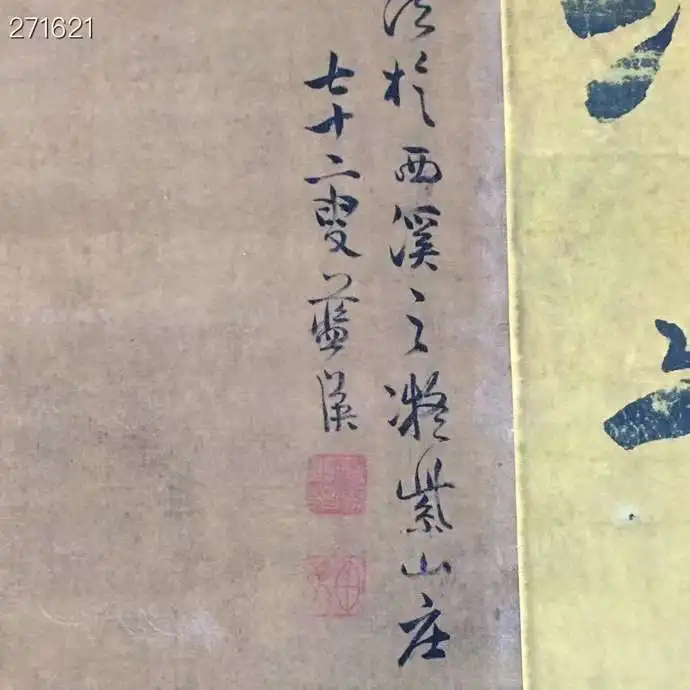 271621
法於西溪之凝紫山庄
七十二叟藍瑛